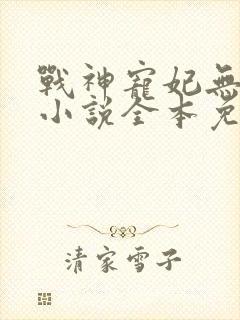 戰神寵妃無
小說全本免
清家雪子